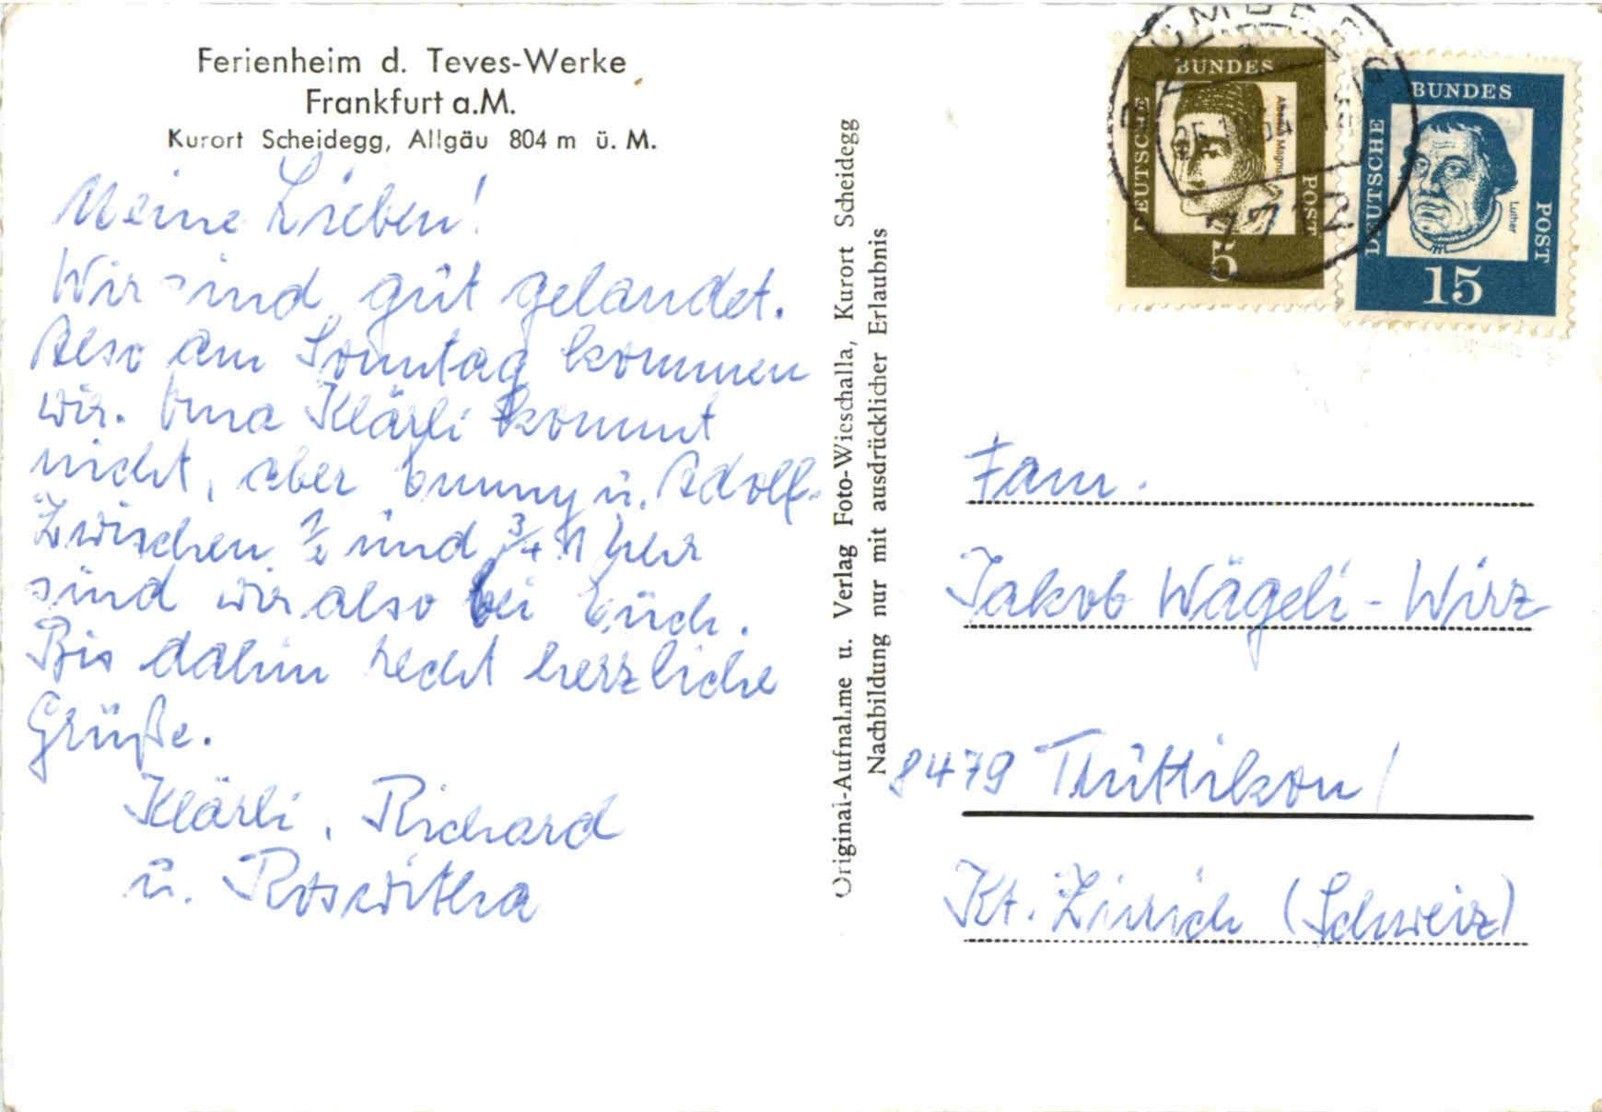 Ferienheim d. Teves-Werke
Frankfurt a.M.
Kurort Scheidegg, Allgäu 804 m ü. M.
Meine Lieben!
Wir sind gut gelandet.
Also am Sonntag kommen
wir. Oma Klärli kommt
nicht, aber Emmy u. Adolf.
Zwischen ½ und ¾ 11 Uhr
sind wir also bei Euch.
Bis dahin recht herzliche
Grüße.
Klärli, Richard
u. Roswitha
Original-Aufnahme u. Verlag Foto-Wieschalla, Kurort Scheidegg
Nachbildung nur mit ausdrücklicher Erlaubnis
DEUTSCHE BUNDES POST
5
DEUTSCHE BUNDES POST
Luther
15
Fam.
Jakob Wägeli-Wirz
8479 Truttikon /
Kt. Zürich (Schweiz)